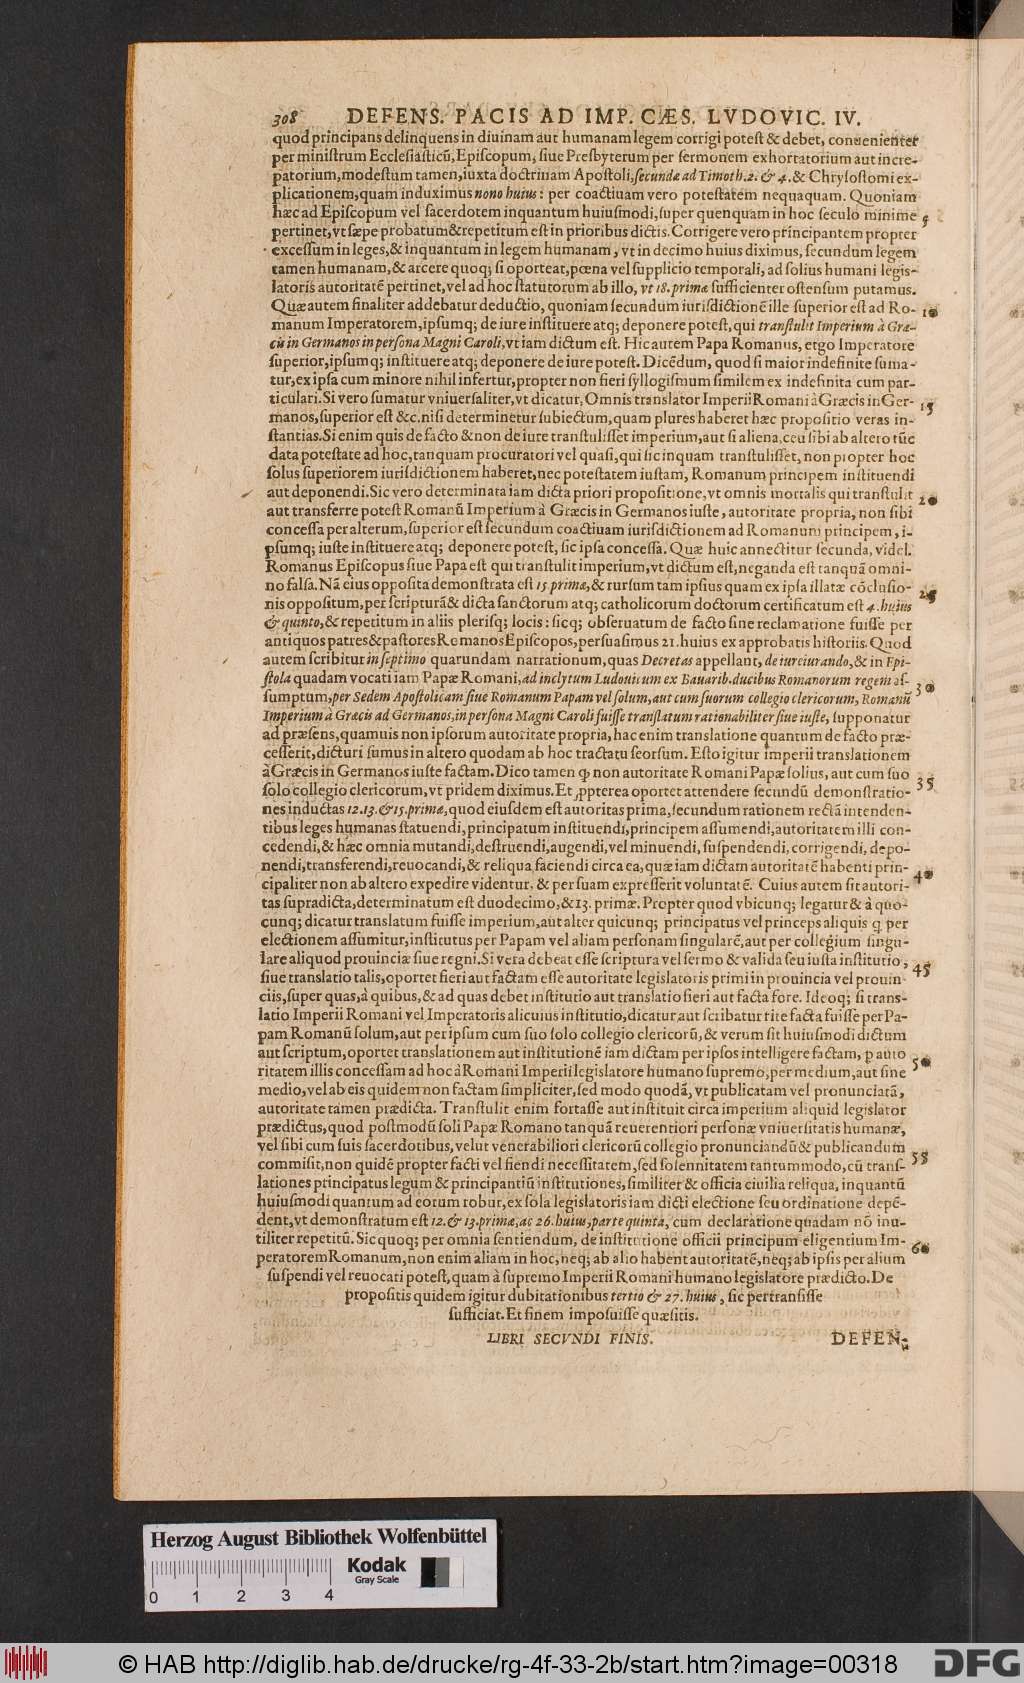 308 DEFENS. PACIS AD IMP. CÆS. LVDOVIC. IV.
quod principans delinquens in diuinam aut humanam legem corrigi potest & debet, conuenienter
per ministrum Ecclesiasticũ, Episcopum, siue Presbyterum per sermonem exhortatorium aut incre-
patorium, modestum tamen, iuxta doctrinam Apostoli, secundæ ad Timoth. 2. & 4. & Chrysostomi ex-
plicationem, quam induximus nono huius: per coactiuam vero potestatem nequaquam. Quoniam
hæc ad Episcopum vel sacerdotem inquantum huiusmodi, super quenquam in hoc seculo minime 5
pertinet, vt sæpe probatum & repetitum est in prioribus dictis. Corrigere vero principantem propter
excessum in leges, & inquantum in legem humanam, vt in decimo huius diximus, secundum legem
tamen humanam, & arcere quoq; si oporteat, pœna vel supplicio temporali, ad solius humani legis-
latoris autoritatẽ pertinet, vel ad hoc statutorum ab illo, vt 18. primæ sufficienter ostensum putamus.
Quæ autem finaliter addebatur deductio, quoniam secundum iurisdictionẽ ille superior est ad Ro- 10
manum Imperatorem, ipsumq; de iure instituere atq; deponere potest, qui transtulit Imperium à Græ-
cis in Germanos in persona Magni Caroli, vt iam dictum est. Hic autem Papa Romanus, ergo Imperatore
superior, ipsumq; instituere atq; deponere de iure potest. Dicẽdum, quod si maior indefinite suma-
tur, ex ipsa cum minore nihil infertur, propter non fieri syllogismum similem ex indefinita cum par-
ticulari. Si vero sumatur vniuersaliter, vt dicatur, Omnis translator Imperii Romani à Græcis in Ger- 15
manos, superior est &c. nisi determinetur subiectum, quam plures haberet hæc propositio veras in-
stantias. Si enim quis de facto & non de iure transtulisset imperium, aut si aliena, ceu sibi ab altero tũc
data potestate ad hoc, tanquam procuratori vel quasi, qui sic inquam transtulisset, non propter hoc
solus superiorem iurisdictionem haberet, nec potestatem iustam, Romanum principem instituendi
aut deponendi. Sic vero determinata iam dicta priori propositione, vt omnis mortalis qui transtulit 20
aut transferre potest Romanũ Imperium à Græcis in Germanos iuste, autoritate propria, non sibi
concessa per alterum, superior est secundum coactiuam iurisdictionem ad Romanum principem, i-
psumq; iuste instituere atq; deponere potest, sic ipsa concessa. Quæ huic annectitur secunda, videl.
Romanus Episcopus siue Papa est qui transtulit imperium, vt dictum est, neganda est tanquã omni-
no falsa. Nã eius opposita demonstrata est 15. primæ, & rursum tam ipsius quam ex ipsa illatæ cõclusio- 25
nis oppositum, per scripturã & dicta sanctorum atq; catholicorum doctorum certificatum est 4. huius
& quinto, & repetitum in aliis plerisq; locis: sicq; obseruatum de facto sine reclamatione fuisse per
antiquos patres & pastores Romanos Episcopos, persuasimus 21. huius ex approbatis historiis. Quod
autem scribitur in septimo quarundam narrationum, quas Decretas appellant, de iureiurando, & in Epi-
stola quadam vocati iam Papæ Romani, ad inclytum Ludouicum ex Bauarib. ducibus Romanorum regem as- 30
sumptum, per Sedem Apostolicam siue Romanum Papam vel solum, aut cum suorum collegio clericorum, Romanũ
Imperium à Græcis ad Germanos, in persona Magni Caroli fuisse translatum rationabiliter siue iuste, supponatur
ad præsens, quamuis non ipsorum autoritate propria, hac enim translatione quantum de facto præ-
cesserit, dicturi sumus in altero quodam ab hoc tractatu seorsum. Esto igitur imperii translationem
à Græcis in Germanos iuste factam. Dico tamen ꝙ non autoritate Romani Papæ solius, aut cum suo 35
solo collegio clericorum, vt pridem diximus. Et ꝓpterea oportet attendere secundũ demonstratio-
nes inductas 12. 13. & 15. primæ, quod eiusdem est autoritas prima, secundum rationem rectã intenden-
tibus leges humanas statuendi, principatum instituendi, principem assumendi, autoritatem illi con-
cedendi, & hæc omnia mutandi, destruendi, augendi, vel minuendi, suspendendi, corrigendi, depo-
nendi, transferendi, reuocandi, & reliqua faciendi circa ea, quæ iam dictam autoritatẽ habenti prin- 40
cipaliter non ab altero expedire videntur, & per suam expresserit voluntatẽ. Cuius autem sit autori-
tas supradicta, determinatum est duodecimo, & 13. primæ. Propter quod vbicunq; legatur & à quo-
cunq; dicatur translatum fuisse imperium, aut alter quicunq; principatus vel princeps aliquis q per
electionem assumitur, institutus per Papam vel aliam personam singularẽ, aut per collegium singu-
lare aliquod prouinciæ siue regni. Si vera debeat esse scriptura vel sermo & valida seu iusta institutio, 45
siue translatio talis, oportet fieri aut factam esse autoritate legislatoris primi in prouincia vel prouin-
ciis, super quas, à quibus, & ad quas debet institutio aut translatio fieri aut facta fore. Ideoq; si trans-
latio Imperii Romani vel Imperatoris alicuius institutio, dicatur aut scribatur rite facta fuisse per Pa-
pam Romanũ solum, aut per ipsum cum suo solo collegio clericorũ, & verum sit huiusmodi dictum
aut scriptum, oportet translationem aut institutionẽ iam dictam per ipsos intelligere factam, ꝓ auto 50
ritatem illis concessam ad hoc à Romani Imperii legislatore humano supremo, per medium, aut sine
medio, vel ab eis quidem non factam simpliciter, sed modo quodã, vt publicatam vel pronunciatã,
autoritate tamen prædicta. Transtulit enim fortasse aut instituit circa imperium aliquid legislator
prædictus, quod postmodũ soli Papæ Romano tanquã reuerentiori personæ vniuersitatis humanæ,
vel sibi cum suis sacerdotibus, velut venerabiliori clericorũ collegio pronunciandũ & publicandum 55
commisit, non quidẽ propter facti vel fiendi necessitatem, sed solennitatem tantummodo, cũ trans-
lationes principatus legum & principantiũ institutiones, similiter & officia ciuilia reliqua, inquantũ
huiusmodi quantum ad eorum robur, ex sola legislatoris iam dicti electione seu ordinatione depẽ-
dent, vt demonstratum est 12. & 13. primæ, ac 26. huius, parte quinta, cum declaratione quadam nõ inu-
tiliter repetitũ. Sic quoq; per omnia sentiendum, de institutione officii principum eligentium Im- 60
peratorem Romanum, non enim aliam in hoc, neq; ab alio habent autoritatẽ, neq; ab ipsis per alium
suspendi vel reuocari potest, quam à supremo Imperii Romani humano legislatore prædicto. De
propositis quidem igitur dubitationibus tertio & 27. huius, sic pertransisse
sufficiat. Et finem imposuisse quæsitis.
LIBRI SECVNDI FINIS. DEFEN-
Herzog August Bibliothek Wolfenbüttel
Kodak
Gray Scale
0 1 2 3 4
© HAB http://diglib.hab.de/drucke/rg-4f-33-2b/start.htm?image=00318
DFG